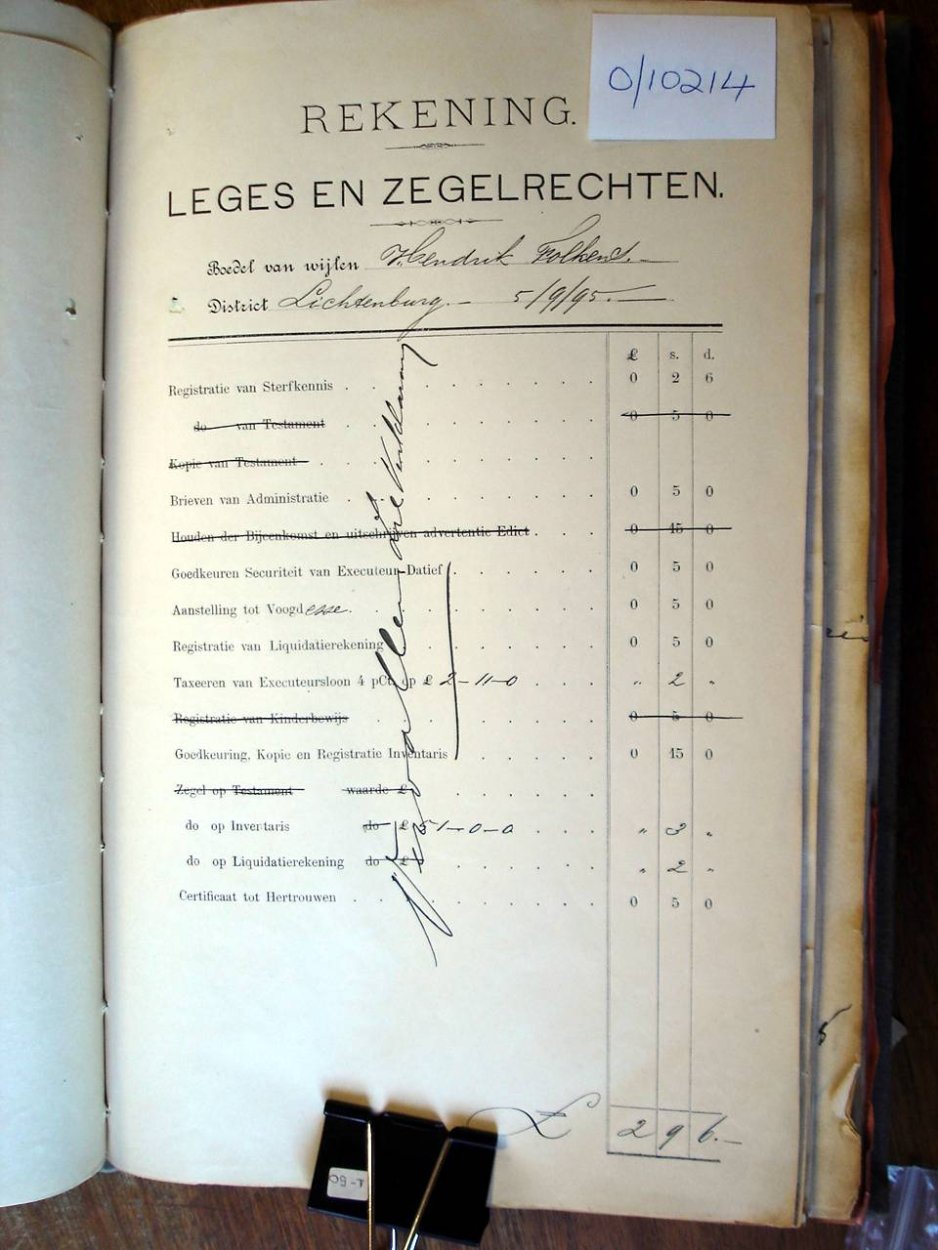 0/10214
REKENING.
LEGES EN ZEGELRECHTEN.
Boedel van wijlen Hendrik Folkerd.
District Lichtenburg. 5/9/95.
£ s. d.
Registratie van Sterfkennis 0 2 6
do van Testament 0 5 0
Kopie van Testament
Brieven van Administratie 0 5 0
Houden der Bijeenkomst en uitschrijven advertentie Edict 0 15 0
Goedkeuren Securiteit van Executeur-Datief 0 5 0
Aanstelling tot Voogdesse. 0 5 0
Registratie van Liquidatierekening 0 5 0
Taxeeren van Executeursloon 4 pCt. op £ 2-11-0 " 2 "
Registratie van Kinderbewijs 0 5 0
Goedkeuring, Kopie en Registratie Inventaris 0 15 0
Zegel op Testament waarde £
do op Inventaris do £ 51-0-0 " 3 "
do op Liquidatierekening do £ " 2 "
Certificaat tot Hertrouwen 0 5 0
£ 2 9 6.-
09-T